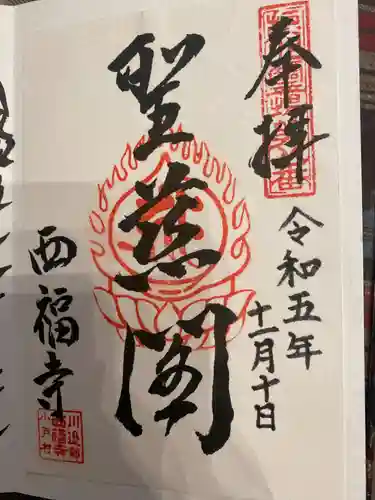 奉拝
令和五年
十一月十日
聖慈閣
西福寺
川邉郡
西福寺
小戸村